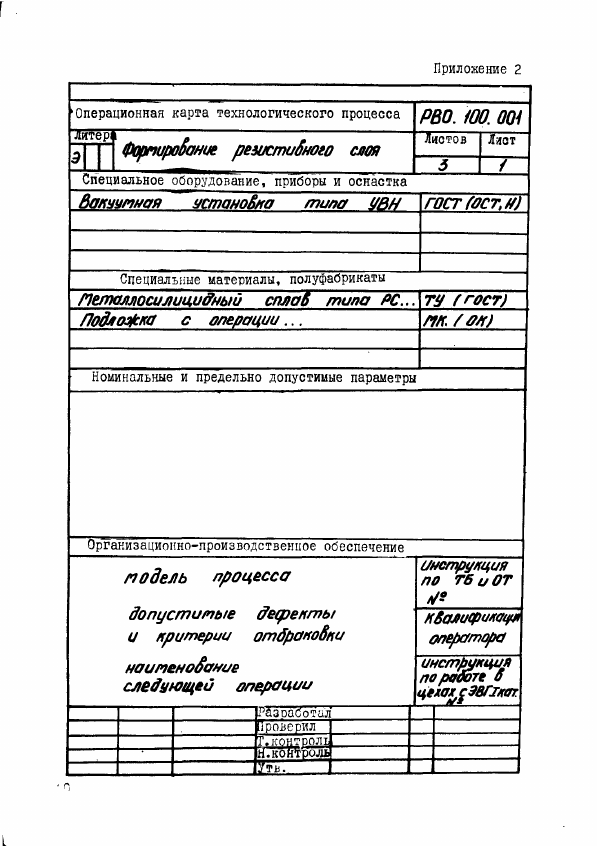 Приложение 2
Операционная карта технологического процесса
РВО. 100. 001
Литер
Э
Формирование резистивного слоя
Листов Лист
3 1
Специальное оборудование, приборы и оснастка
Вакуумная установка типа УВН ГОСТ (ОСТ, Н)
Специальные материалы, полуфабрикаты
Металлосилицидный сплав типа РС... ТУ (ГОСТ)
Подложка с операции... МК. (ОК)
Номинальные и предельно допустимые параметры
Организационно-производственное обеспечение
модель процесса
допустимые дефекты
и критерии отбраковки
наименование
следующей операции
Инструкция
по ТБ и ОТ
№
Квалификация
оператора
инструкция
по работе в
цехах с ЭВГ I кат.
№
Разработал
Проверил
Т.контроль
Н.контроль
Утв.